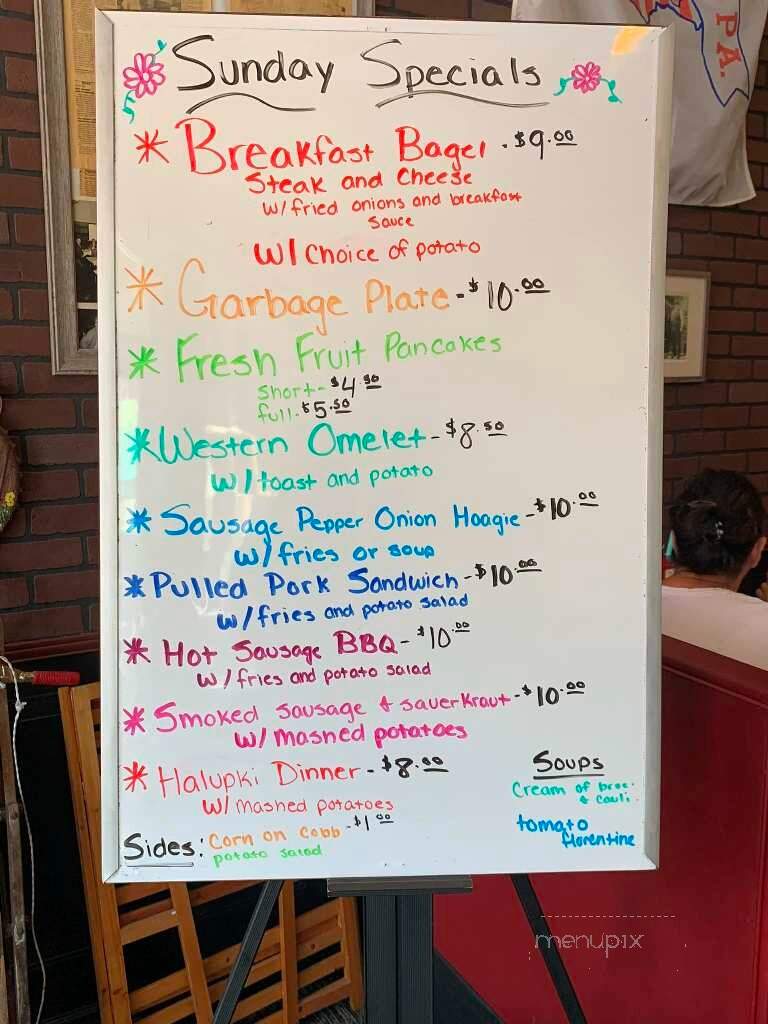 Sunday Specials
P.A.
* Breakfast Bagel - $9.00
Steak and Cheese
w/ fried onions and breakfast
sauce
w/ choice of potato
* Garbage Plate - $10.00
* Fresh Fruit Pancakes
short - $4.50
full - $5.50
* Western Omelet - $8.50
w/ toast and potato
* Sausage Pepper Onion Hoagie - $10.00
w/ fries or soup
* Pulled Pork Sandwich - $10.00
w/ fries and potato salad
* Hot Sausage BBQ - $10.00
w/ fries and potato salad
* Smoked sausage & sauerkraut - $10.00
w/ mashed potatoes
* Halupki Dinner - $8.00
w/ mashed potatoes
Sides: Corn on Cobb - $1.00
potato salad
Soups
Cream of broc.
& cauli.
tomato
florentine
menupix